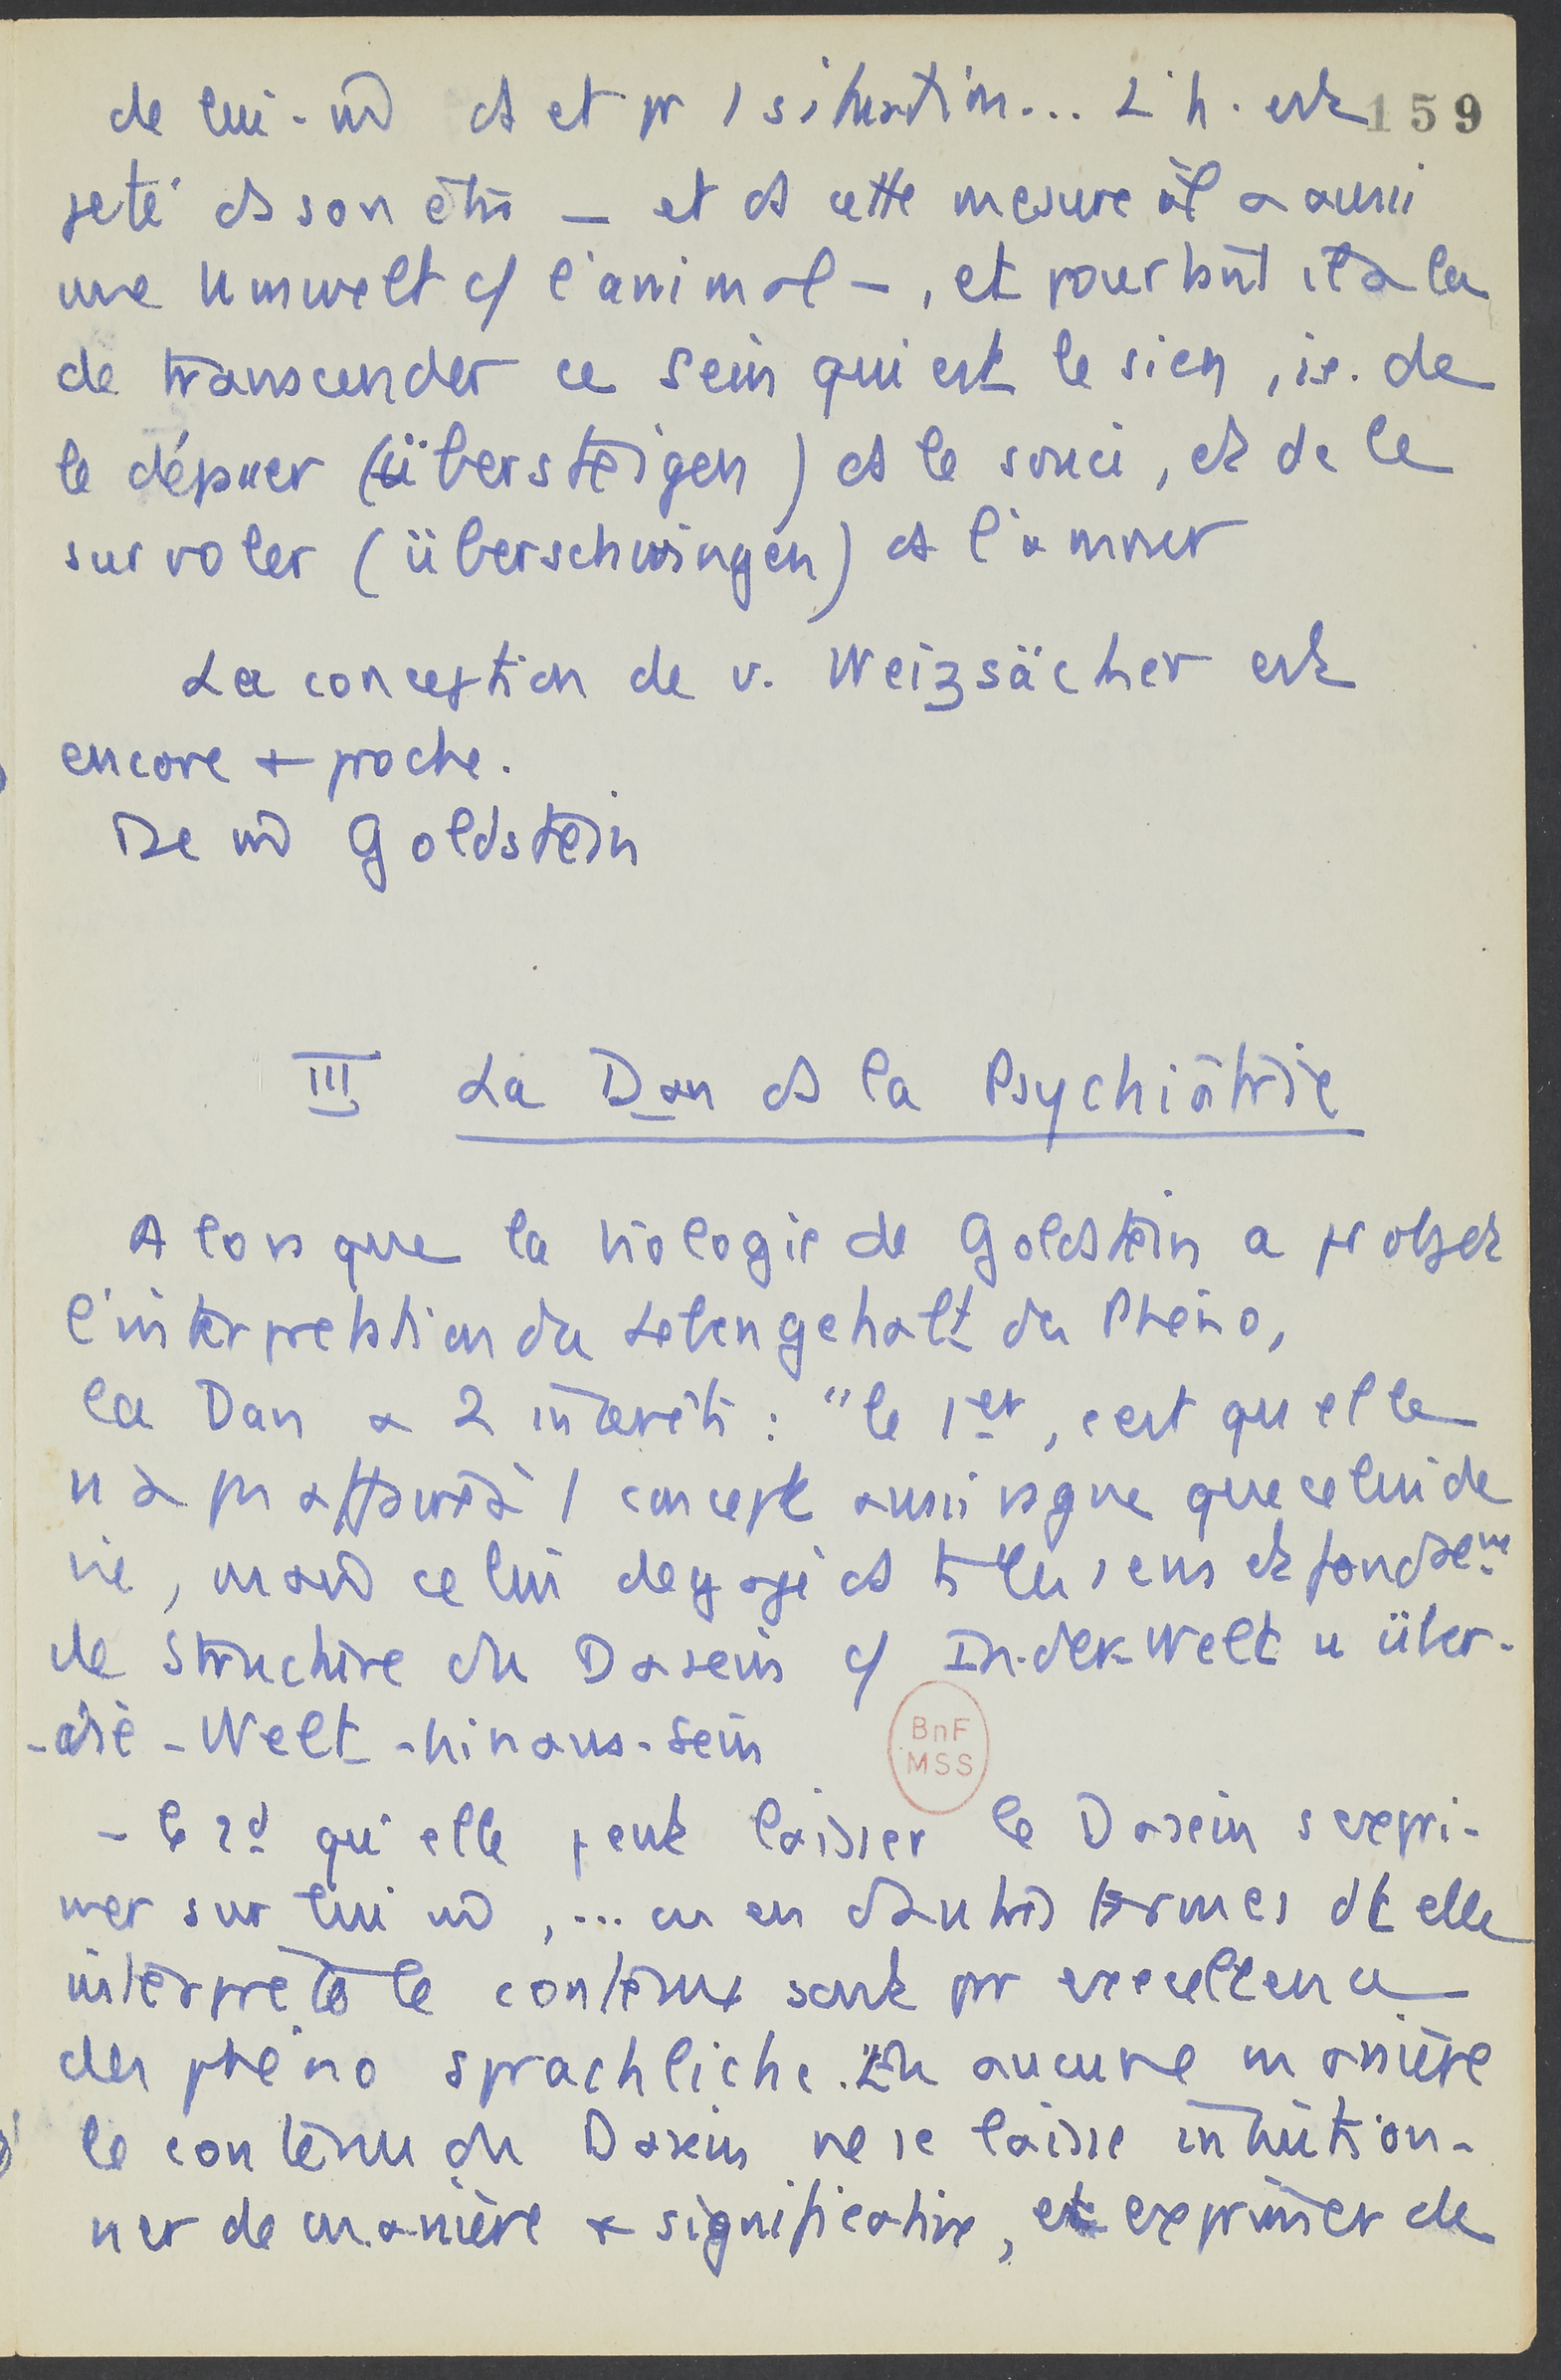 de lui-m̂ ds et pr 1 situation... L'h. est
159
jeté ds son être — et ds cette mesure il a aussi
une Umwelt c/ l'animal —, et pourtant il a la
de transcender ce Sein qui est le sien, ie. de
le dépasser (übersteigen) ds le souci, et de le
survoler (überschwingen) ds l'amour
La conception de v. Weizsäcker est
encore + proche.
De m̂ Goldstein
III La Dan ds la Psychiatrie
Alors que la biologie de Goldstein a pr objet
l'interprétation du Lebengehalt des Phéno,
la Dan a 2 intérêts : "le 1er, c'est qu'elle
n'a pas affaire à 1 concept aussi vague que celui de
vie, mais celui dégagé ds ts les sens et fondae͟m͟
de structure du Dasein c/ In-der-Welt u über-
-die-Welt-hinaus-sein
- le 2d qu'elle peut laisser le Dasein s'expri-
mer sur lui m̂, ... ou en d'autres termes dt elle
interprète le contenu sont par excellence
des phéno sprachliche. "En aucune manière
le contenu du Dasein ne se laisse intuition-
ner de manière + significative, et exprimer de
BnF
MSS